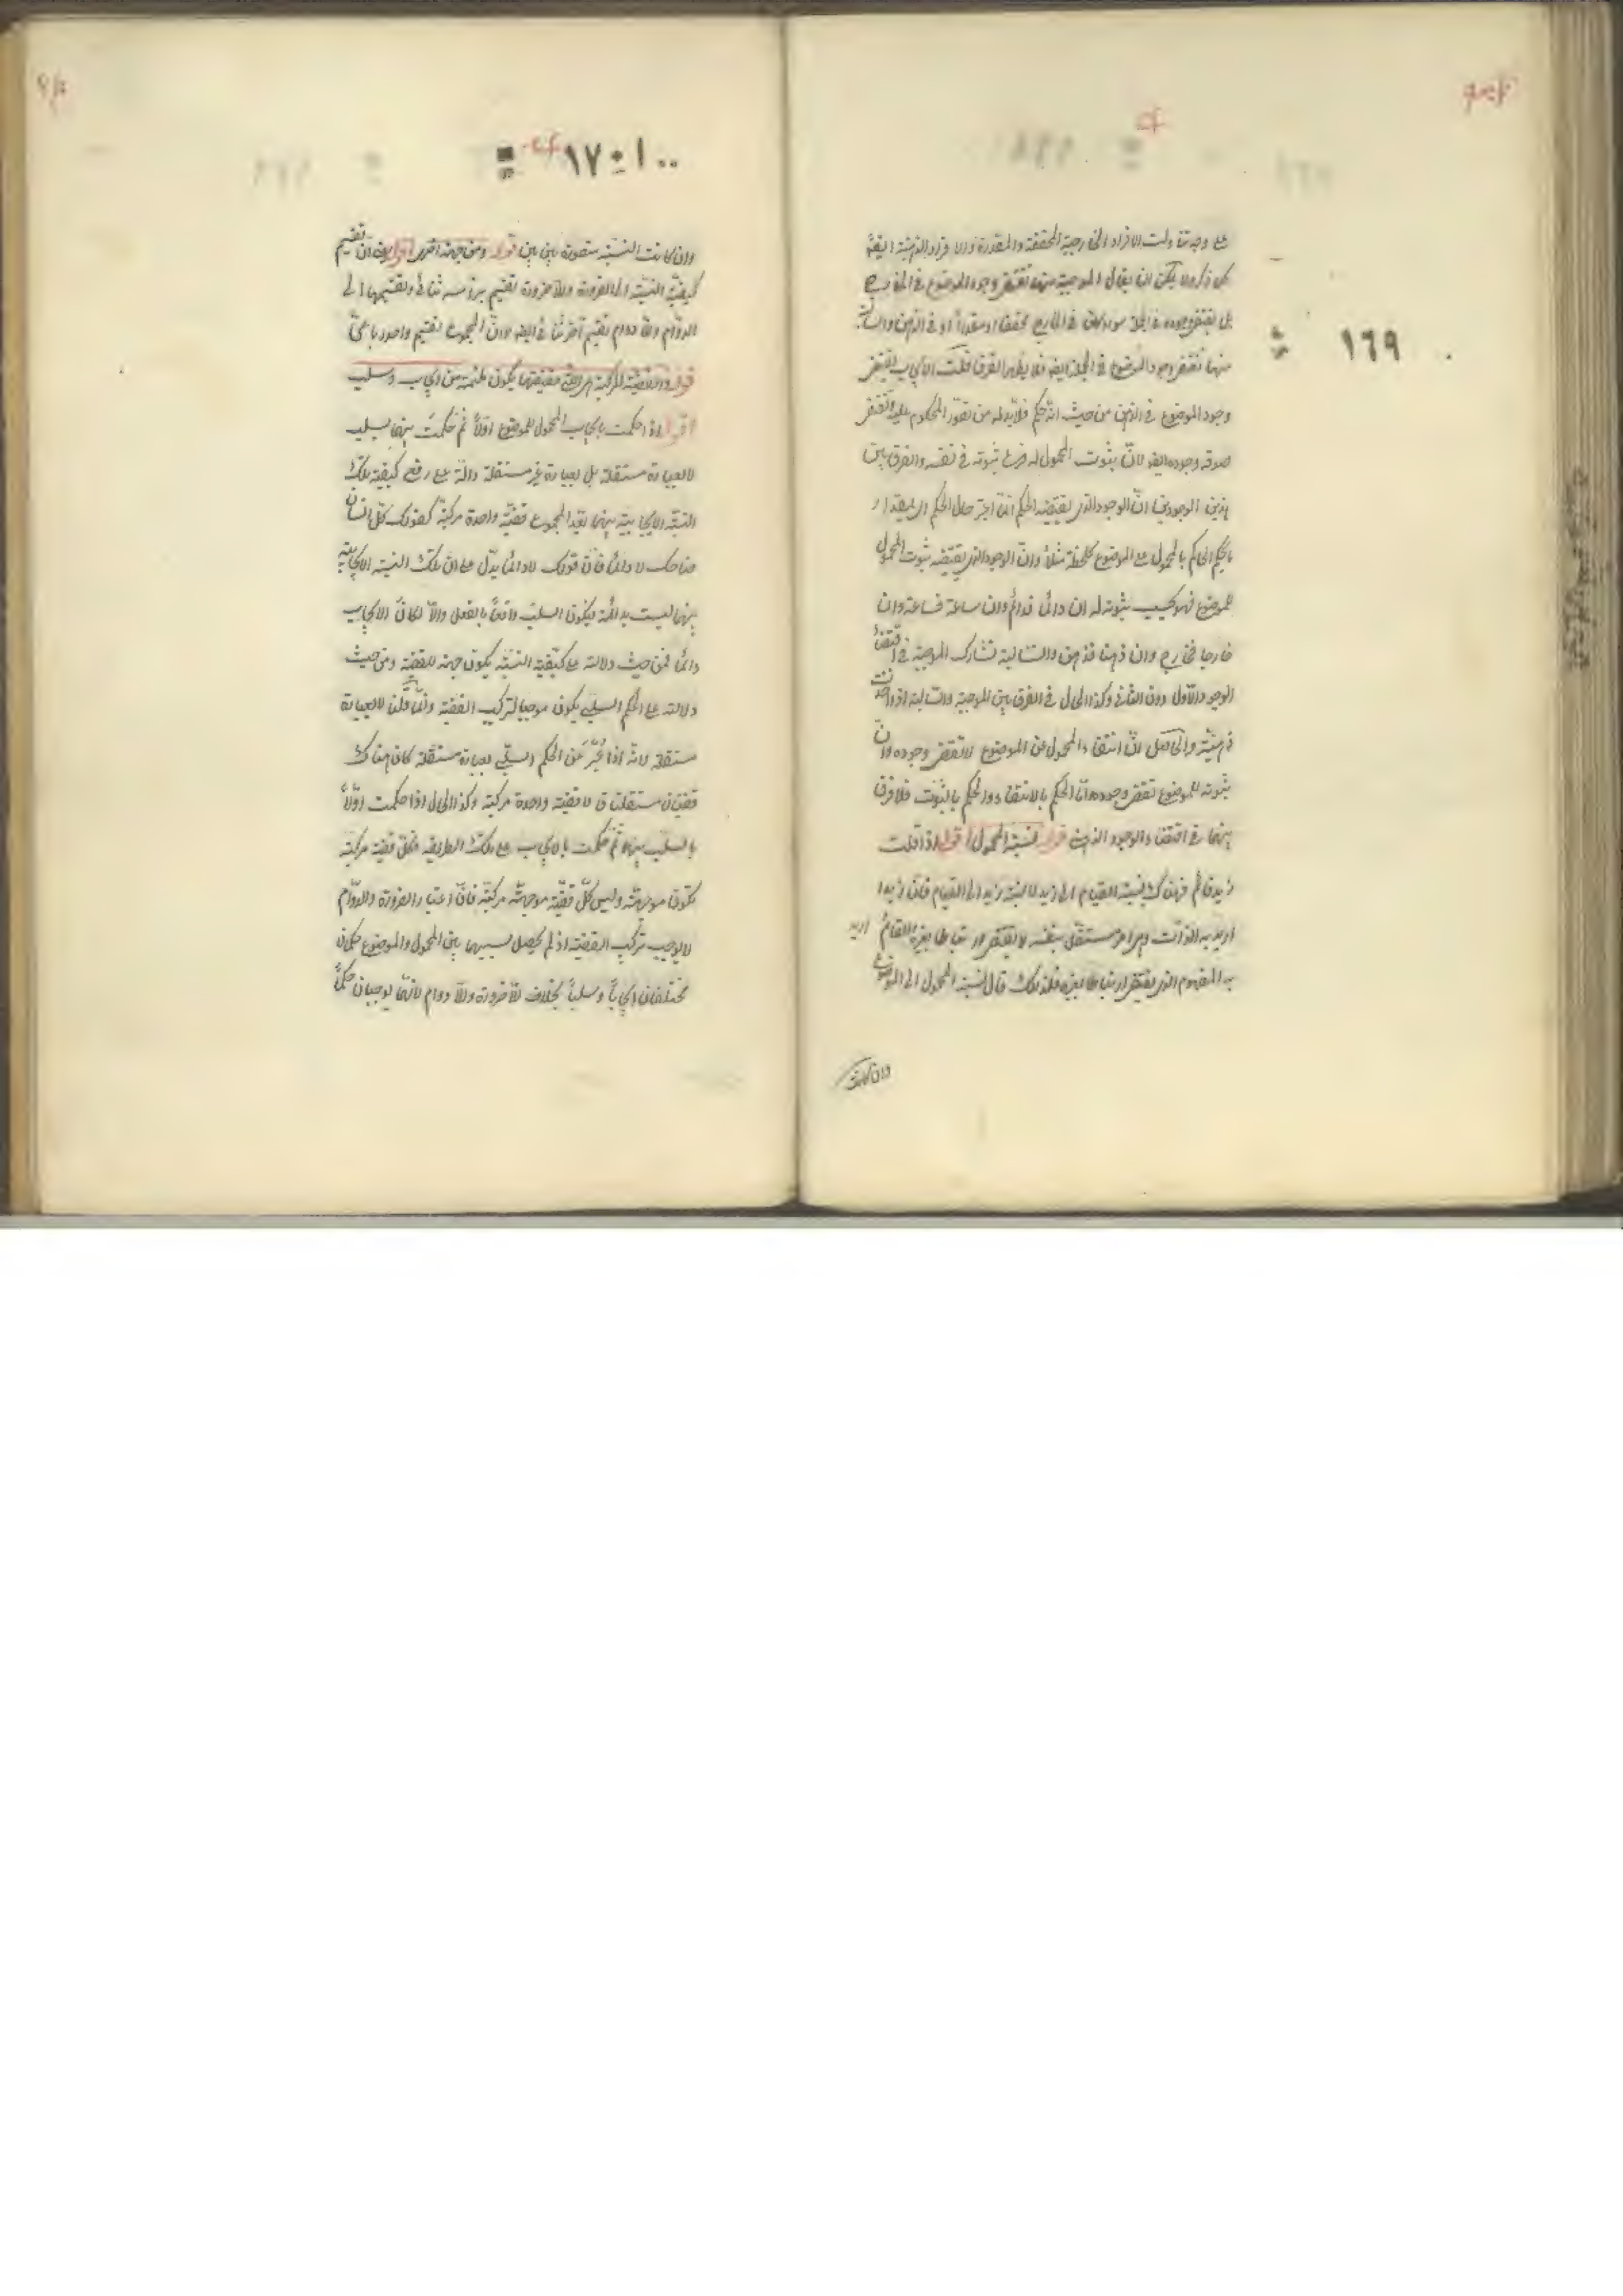 ١٦٩
على وجه تناولت الافراد الخارجية المحققة والمقدرة والافراد الذهنية ايضا
كما ذكر ولا يمكن ان يقال الموجبة منها تقتضى وجود الموضوع فى الخارج
بل يقتضى وجوده فى الجملة سواء كان فى الخارج محققا او مقدرا او فى الذهن والسالبة
منها تقتضى وجود الموضوع فى الجملة ايضا فلا يظهر الفرق قلت الايجاب يقتضى
وجود الموضوع فى الذهن من حيث انه حكم فلا بد له من تصور المحكوم عليه وتقتضى
صدقه وجوده ايضا لان ثبوت المحمول له فرع ثبوته فى نفسه والفرق بين
هذين الوجودين ان الوجود الذى يقتضيه الحكم انما يعتبر حال الحكم اى بمقدار
ما يحكم الحاكم بالمحمول على الموضوع كلحظة مثلا وان الوجود الذى يقتضيه ثبوت المحمول
للموضوع فهو بحسب ثبوته له ان دائما فدائم وان ساعة فساعة وان
خارجا فخارج وان ذهنا فذهن والسالبة تشارك الموجبة فى اقتضاء
الوجود الاول دون الثانى وكذا الحال فى الفرق بين الموجبة والسالبة اذا اخذت
ذهنية والحاصل ان انتفاء المحمول عن الموضوع لا تقتضى وجوده وان
ثبوته للموضوع تقتضى وجوده اما الحكم بالانتفاء والحكم بالثبوت فلا فرق
بينهما فى اقتضاء الوجود الذهنى قوله نسبة المحمول اقول اذا قلت
زيد قائم فهناك نسبة القيام الى زيد لا نسبة زيد الى القيام فان زيدا
اريد به الذات وهو امر مستقل بنفسه لا يقتضى ارتباطا بغيره والقائم اريد
به المفهوم الذى يقتضى ارتباطا بغيره فلذلك قال نسبة المحمول الى الموضوع
وان كانت
١٧٠
وان كانت النسبة متصورة بين بين قوله ومن جهة اخرى اقول يريد ان تقسيم
كيفية النسبة الى الضرورة واللاضرورة تقسيم براسه ثنائى وتقسيمها الى
الدوام واللادوام تقسيم آخر ثنائى ايضا وان المجموع تقسيم واحد رباعى
قوله والقضية المركبة هى التى حقيقتها يكون ملتئمة من ايجاب وسلب
اقول اذا حكمت بايجاب المحمول للموضوع اولا ثم حكمت بينهما بسلب
لا بعبارة مستقلة بل بعبارة غير مستقلة دالة على رفع كيفية تلك
النسبة الايجابية بينهما يعد المجموع قضية واحدة مركبة كقولك كل انسان
ضاحك لا دائما فان قولك لا دائما يدل على ان تلك النسبة الايجابية
بينهما ليست بدائمة فيكون السلب واقعا بالفعل والا لكان الايجاب
دائما فمن حيث دلالته على كيفية النسبة يكون جهة للقضية ومن حيث
دلالته على الحكم السلبى يكون موجبا لتركيب القضية وانما قلنا لا بعبارة
مستقلة لانه اذا عُبّر عن الحكم السلبى بعبارة مستقلة كان هناك
قضيتان مستقلتان لا قضية واحدة مركبة وكذا الحال اذا حكمت اولا
بالسلب بينهما ثم حكمت بالايجاب على تلك الطريقة فكل قضية مركبة
تكون موجهة وليس كل قضية موجهة مركبة فان اعتبار الضرورة والدوام
لا يوجب تركيب القضية اذ لم يحصل بسببهما بين المحمول والموضوع حكمان
مختلفان ايجابا وسلبا بخلاف اللاضرورة واللادوام لانهما يوجبان حكما